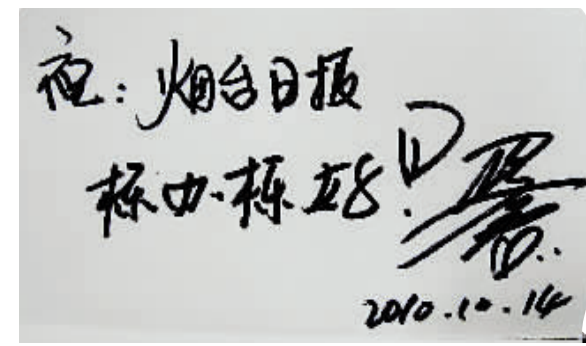 祝：烟台日报
越办越好！
2010.10.14